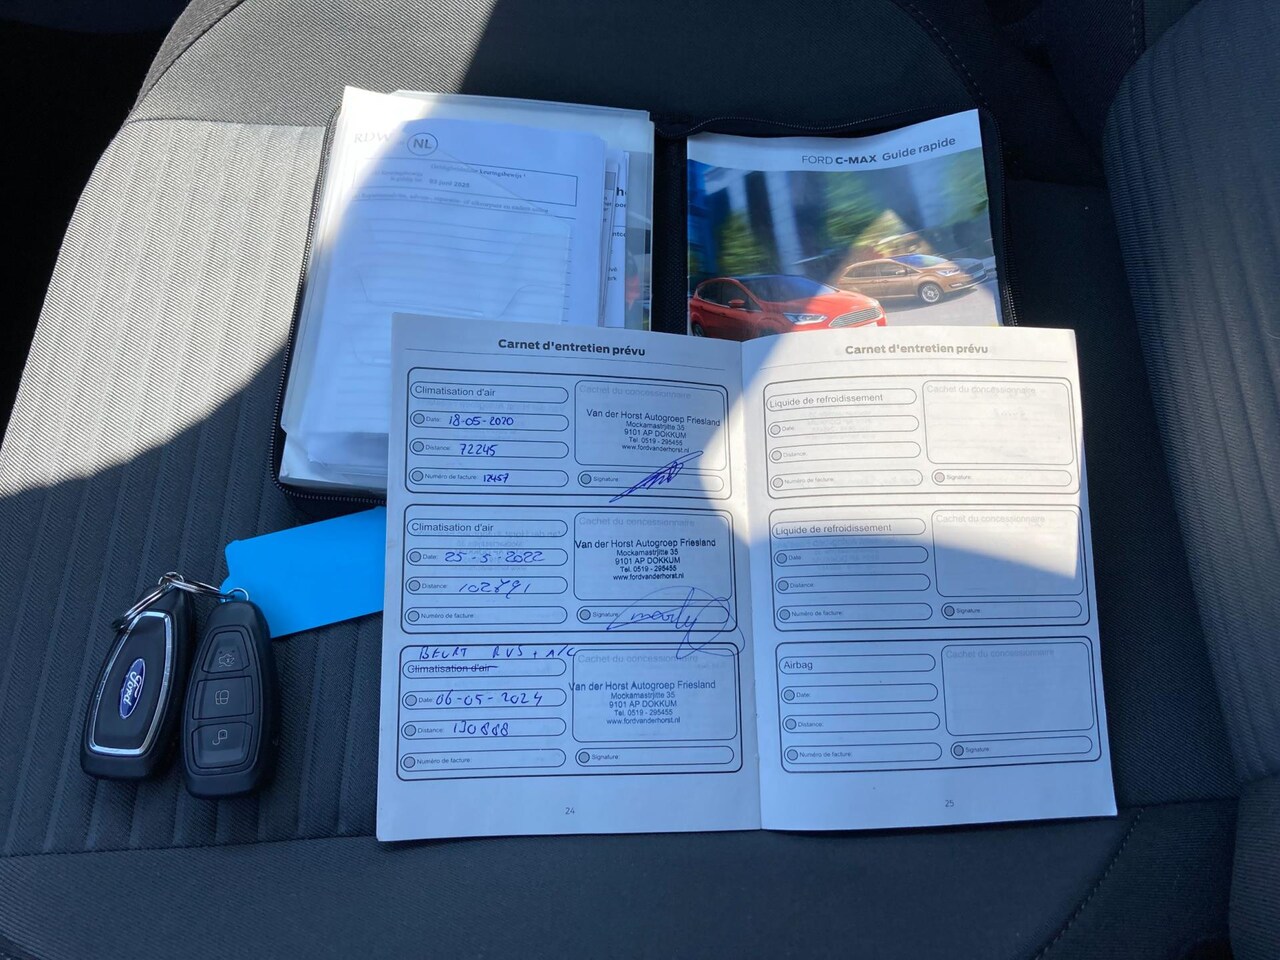 RDW NL
keuringsbewijs
FORD C-MAX Guide rapide
Carnet d'entretien prévu
Climatisation d'air
Date: 18-05-2020
Distance: 72245
Numéro de facture: 12457
Cachet du concessionnaire
Van der Horst Autogroep Friesland
Mockamastrjitte 35
9101 AP DOKKUM
Tel. 0519 - 295455
www.fordvanderhorst.nl
Signature:
Climatisation d'air
Date: 25-5-2022
Distance: 102791
Numéro de facture:
Cachet du concessionnaire
Van der Horst Autogroep Friesland
Mockamastrjitte 35
9101 AP DOKKUM
Tel. 0519 - 295455
www.fordvanderhorst.nl
Signature:
BEURT RVS + A/C
Climatisation d'air
Date: 06-05-2024
Distance: 130888
Numéro de facture:
Cachet du concessionnaire
Van der Horst Autogroep Friesland
Mockamastrjitte 35
9101 AP DOKKUM
Tel. 0519 - 295455
www.fordvanderhorst.nl
Signature:
24
Carnet d'entretien prévu
Liquide de refroidissement
Date:
Distance:
Numéro de facture:
Cachet du concessionnaire
Signature:
Liquide de refroidissement
Date:
Distance:
Numéro de facture:
Cachet du concessionnaire
Signature:
Airbag
Date:
Distance:
Numéro de facture:
Cachet du concessionnaire
Signature:
25
Ford